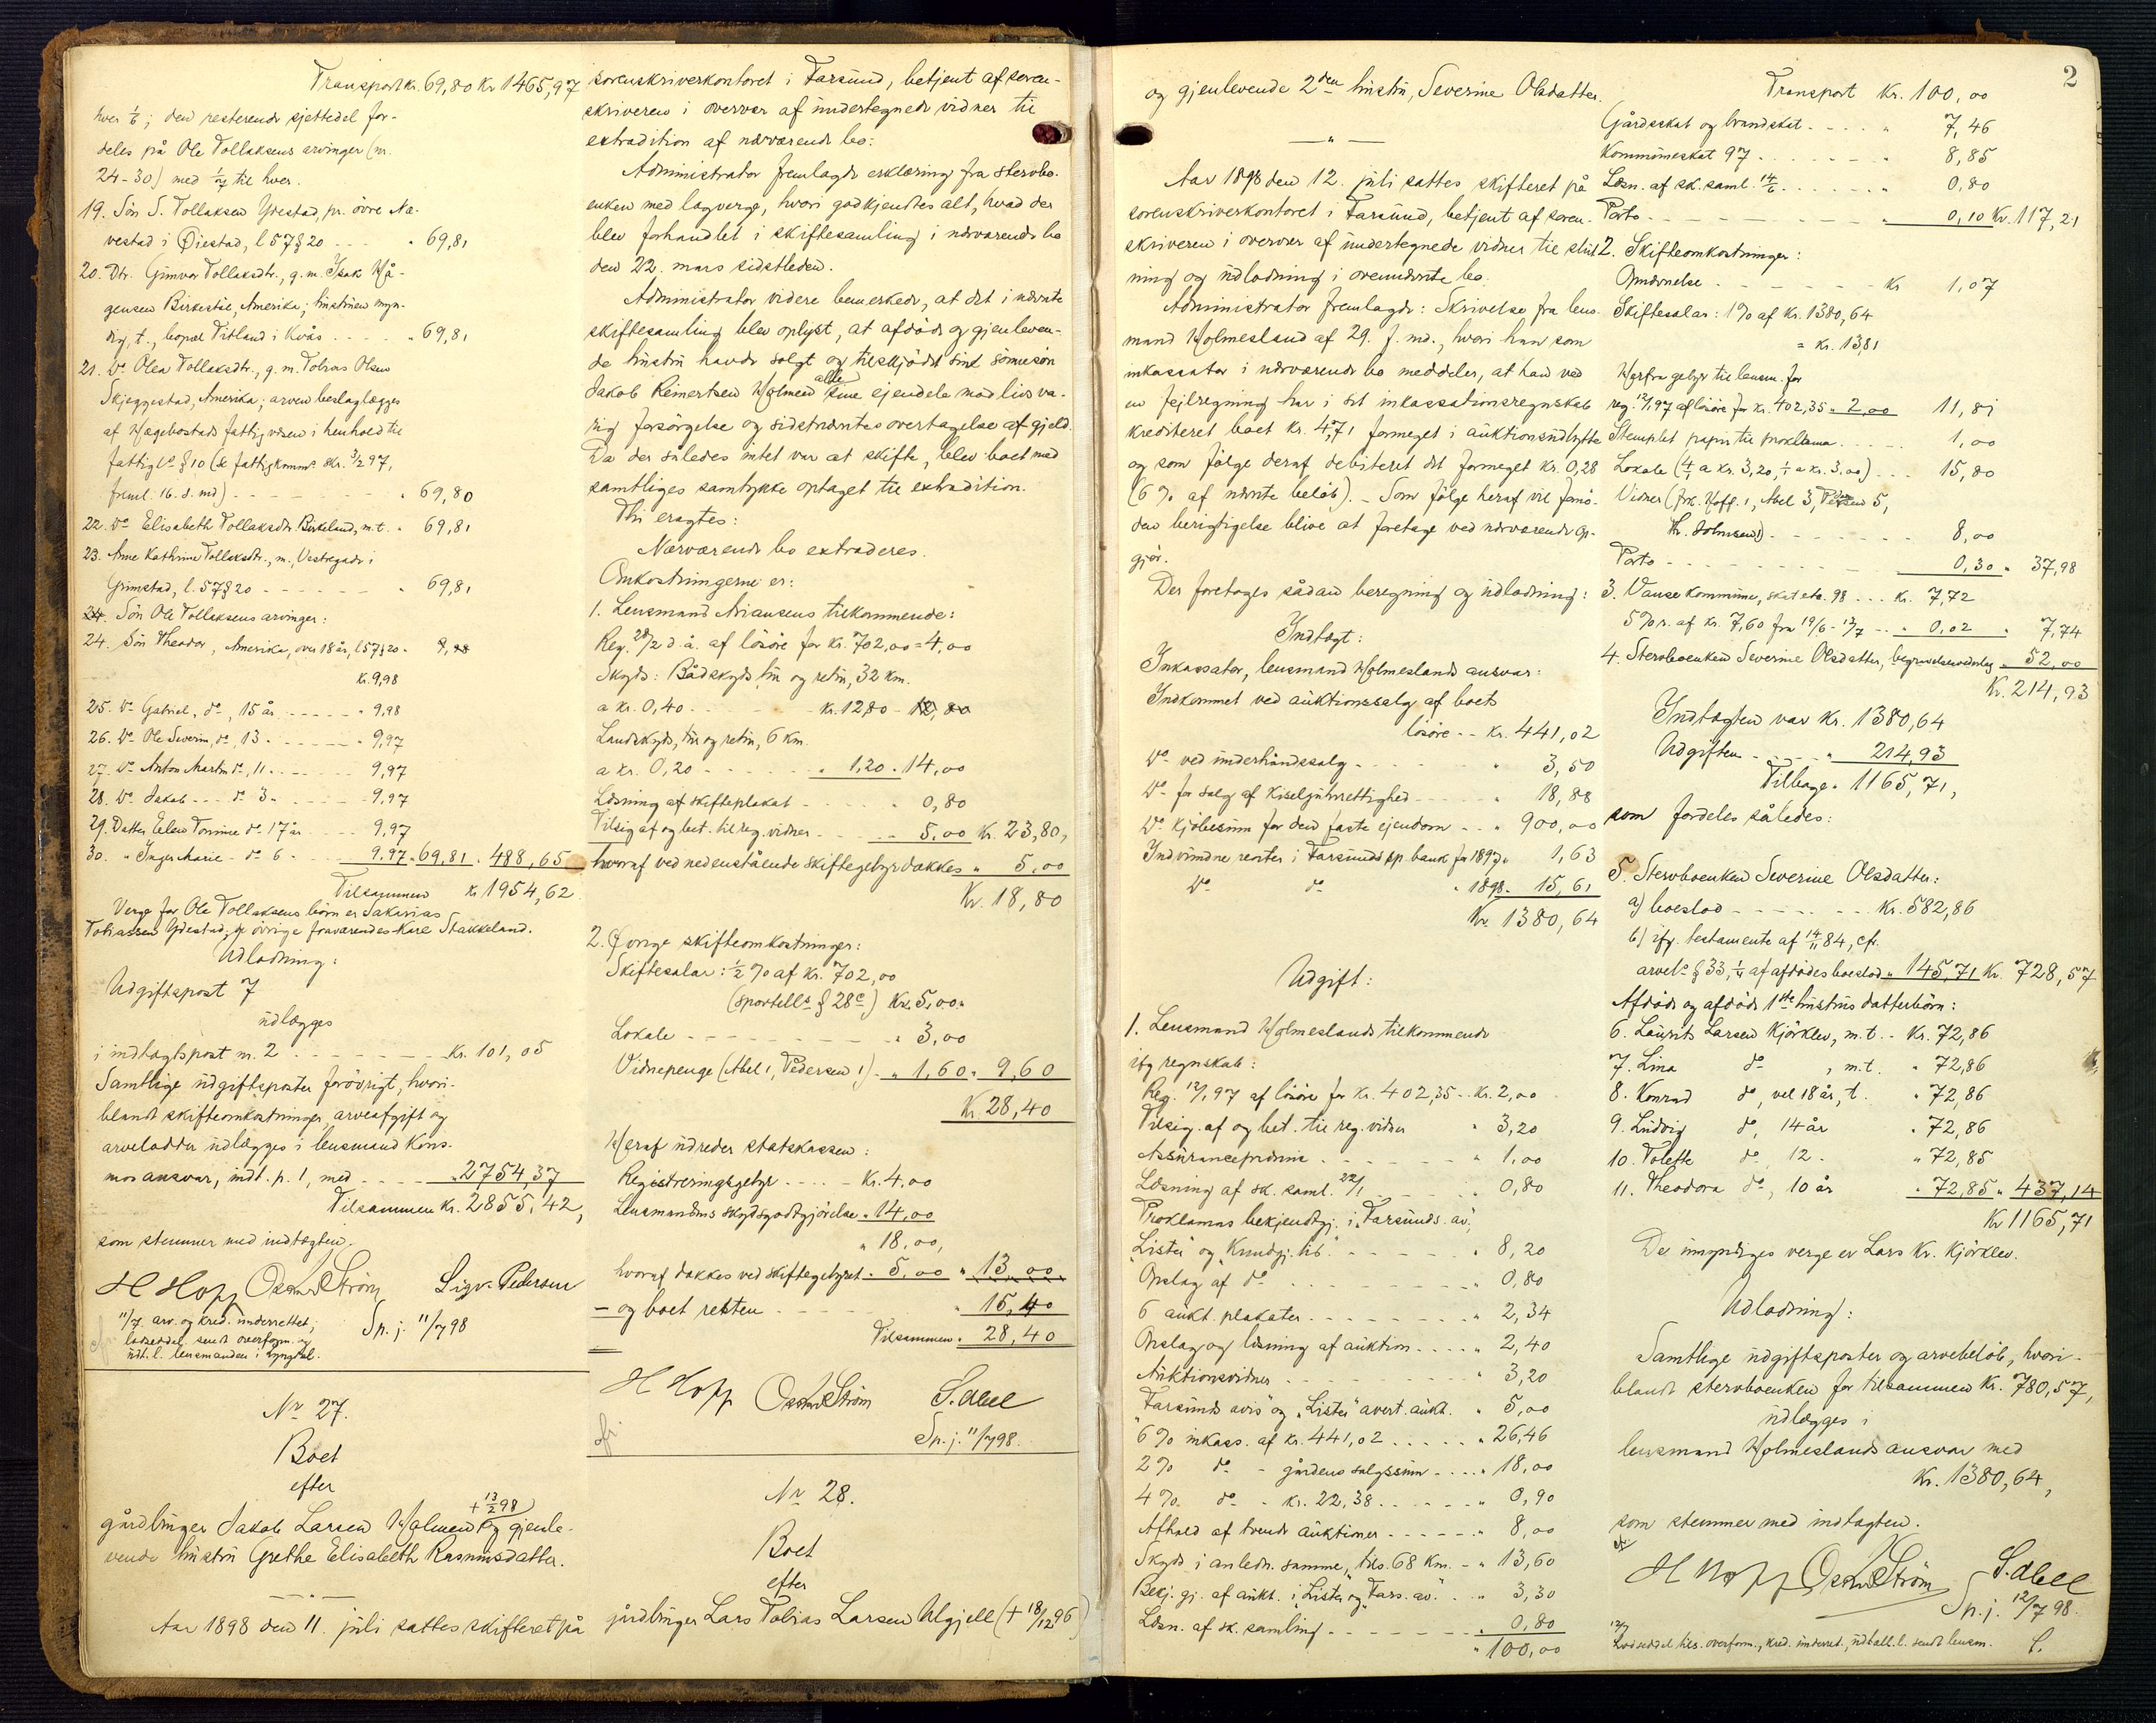 Transport kr. 69,80 Kr 1465,97
hver 1/6; den resterende sjettedel for-
deles på Ole Tollaksens arvinger (nr.
24-30) med 1/7 til hver.
19. Sön S. Tollaksen Ydestad, pr. övre Næ-
vestad i Øiestad, l 57 § 20 - - - - " 69,81
20. Dtr. Gunvor Tollaksdtr., g. m. Isak Hå-
gensen Birkestöl, Amerika; hustruen myn-
dig, t., bopæl Titland i Kvås - - - - " 69,81
21. Do Olea Tollaksdtr., g. m. Tobias Olsen
Skjeggestad, Amerika; arven beslaglægges
af Hægebostads fattigvæsen i henhold til
fattigl. § 10 (se fattigkomm. skr. 3/2 97,
freml. 16. s. md) - - - - - - " 69,80
22. Do Elisabeth Tollaksdtr. Birkeland, m. t. " 69,81
23. Ane Kathrine Tollaksdtr., m., Vestregade i
Grimstad, l. 57 § 20 - - - - - - " 69,81
24. Sön Ole Tollaksens arvinger:
24. Sön Theodor, Amerika, over 18 år, l 57 § 20 - 9,98
kr. 9,98
25. Do Gabriel, do, 15 år - - - - - " 9,98
26. Do Ole Severin, do, 13 " - - - - " 9,97
27. Do Anton Martin do, 11 " - - - - 9,97
28. Do Jakob - - - do 3 " - - - - - 9,97
29. Datter Elen Tomine do 17 år - - - 9,97
30. " Inger Marie - do 6 " - - - 9.97 " 69,81 " 488,65
Tilsammen Kr 1954,62
Verge for Ole Tollaksens börn er Sakarias
Tobiassen Ydestad, for övrige fraværendes Karl Stakkeland.
Udlodning:
Udgiftspost 7
udlægges
i indtægtspost nr. 2 - - - - - - - Kr. 101,05
Samtlige udgiftsposter forövrigt, hvori-
blandt skifteomkostninger, arveafgift og
arvelodder udlægges i lensmand Kons-
mos ansvar, indt. p. 1, med - - - - " 2754,37
Tilsammen Kr. 2855,42,
som stemmer med indtægten.
H Hopp Oskar Ström Sigv. Pedersen
11/7. arv. og kred. underrettet;
lodseddel sendt overform. og
udt. l. lensmanden i Lyngdal.
Sp. j. 11/7 98
Nr 27.
Boet
efter
+ 13/2 98
gårdbruger Jakob Larsen Holmen og gjenle-
vende hustru Grethe Elisabeth Rasmusdatter.
Aar 1898 den 11. juli sattes skifteret på
sorenskriverkontoret i Farsund, betjent af soren-
skriveren i overvær af undertegnede vidner til
extradition af nærværende bo:
Administrator fremlagde erklæring fra stervbo-
enken med lagverge, hvori godkjendtes alt, hvad der
blev forhandlet i skiftesamling i nærværende bo
den 22. mars sidstleden.
Administrator videre bemerkede, at det i nævnte
skiftesamling blev oplyst, at afdöde og gjenleven-
de hustru havde solgt og tilskjödet sin sönnesön
Jakob Reinertsen Holmen alle sine ejendele mod livsva-
rig forsörgelse og sidstnævntes overtagelse af gjeld.
Da der således intet var at skifte, blev boet med
samtliges samtykke optaget til extradition.
Thi eragtes:
Nærværende bo extraderes.
Omkostningerne er:
1. Lensmand Ariansens tilkommende:
Reg. 28/2 d. å. af lösöre for kr. 702,00 = 4,00
Skyds: Bådskyds, tur og retur, 32 km.
a kr. 0,40 - - - - - - - kr. 12,80 - 12,80
Landskyds, tur og retur, 6 km.
a kr. 0,20 - - - - - - " 1,20 " 14,00
Læsning af skifteplakat - - - - - " 0,80
Tilsig. af og bet. til reg. vidner - - - - - 5,00 Kr. 23,80,
hvoraf ved nedenstående skiftegebyr dækkes " 5,00
Kr. 18,80
2. Övrige skifteomkostninger:
Skiftesalær: 1/2 % af kr. 702,00
(sportell. § 28 c) Kr. 5,00 "
Lokale - - - - - - - - - " 3,00
Vidnepenge (Abel 1, Pedersen 1) - " 1,60 " 9,60
Kr. 28,40
Heraf udreder statskassen:
Registreringsgebyr - - - - Kr. 4,00
Lensmandens skydsgodtgjörelse " 14,00
" 18,00,
hvoraf dækkes ved skiftegebyret " 5,00 " 13,00
- og boet resten - - - - - - " 15,40
Tilsammen " 28,40
H Hopp Oskar Ström S. Abel
Sp. j. 11/7 98.
Nr 28.
Boet
efter
gårdbruger Lars Tobias Larsen Ulgjell (+ 18/12 96)
2
og gjenlevende 2den hustru, Severine Olsdatter.
Aar 1898 den 12. juli sattes skifteret på
sorenskriverkontoret i Farsund, betjent af soren-
skriveren i overvær af undertegnede vidner til slut-
ning og udlodning i ovennævnte bo.
Administrator fremlagde: Skrivelse fra lens-
mand Holmesland af 29. f. md., hvori han som
inkassator i nærværende bo meddeler, at han ved
en fejlregning har i sit inkassationsregnskab
krediteret boet kr. 4,71 formeget i auktionsudbytte
og som fölge deraf debiteret det formeget kr. 0,28
(6 % af nævnte belöb). - Som fölge heraf vil fornö-
den berigtigelse blive at foretage ved nærværende op-
gjör.
Der foretoges sådan beregning og udlodning:
Indtægt:
Inkassator, lensmand Holmeslands ansvar:
Indkommet ved auktionssalg af boets
lösöre - - kr. 441,02
Do ved underhåndssalg - - - - - - " 3,50
Do for salg af Kiselguhrrettighed - - - - " 18,88
Do Kjöbesum for den faste ejendom - - " 900,00
Indvundne renter i Farsunds sp. bank for 1897 " 1,63
Do do " 1898 " 15,61
Kr. 1380,64
Udgift:
1. Lensmand Holmeslands tilkommende
ifg regnskab:
Reg. 12/1 97 af lösöre for kr. 402,35 - kr. 2,00
Tilsig. af og bet. til reg. vidner " 3,20
Assurancepræmie - - - - - - " 1,00
Læsning af sk. saml. 22/1 - - - - " 0,80
Proklamas bekjendtgj. i "Farsunds av.",
"Lister" og "Kundgj. tid." - - - - - " 8,20
Opslag af do - - - - - - - - " 0,80
6 aukt. plakater - - - - - - - " 2,34
Opslag og læsning af auktion - - - - " 2,40
Auktionsvidner - - - - - - - " 3,20
"Farsunds avis" og "Lister" avert. aukt. " 5,00
6 % inkass. af kr. 441,02 - - - - - " 26,46
2 % do - gårdens salgssum - - - - " 18,00
4 % do - kr. 22,38 - - - - - " 0,90
Afhold af tvende auktioner - - - - - " 8,00
Skyds i anledn. samme, tils. 68 Km. - " 13,60
Bekj. gj. af aukt. i "Lister" og "Fars. av." - " 3,30
Læsn. af sk. samling - - - - - - - " 0,80
" 100,00
Transport Kr. 100,00
Gårdsskat og brandskat - - - - " 7,46
Kommuneskat 97 - - - - - - " 8,85
Læsn. af sk. saml. 14/6 - - - - - - " 0,80
Porto - - - - - - - - - - " 0,10 Kr. 117,21
2. Skifteomkostninger:
Opnævnelse - - - - - - - kr 1,07
Skiftesalær: 1 % af kr. 1380,64
= kr. 13,81
Herfra gebyr til lensm. for
reg. 12/1 97 af lösöre for kr. 402,35 " 2,00 11,81
Stemplet papir til proklama - - - - 1,00
Lokale (4/1 a kr. 3,20, 1/1 a kr. 3.00) - - - 15,80
Vidner (frk. Hoff. 1, Abel 3, Pedersen 5,
Th. Salvesen 1) - - - - - - - 8,00
Porto - - - - - - - - - 0,30 " 37,98
3. Vanse kommune, skat etc. 98 - - - kr. 7,72
5 % r. af kr. 7,60 fra 19/6 - 12/7 - - " 0,02 " 7,74
4. Stervboenken Severine Olsdatter, begravelsesvederlag " 52,00
Kr. 214,93
Indtægten var kr. 1380,64
Udgiften - - - - " 214,93
Tilbage " 1165,71,
som fordeles således:
5. Stervboenken Severine Olsdatter:
a) boeslod - - - - - - - Kr. 582,86
b) ifg. testamente af 14/11 84, cfr.
arvel. § 33, 1/4 af afdödes boeslod " 145,71 Kr. 728,57
Afdöde og afdöde 1ste hustrus datterbörn:
6. Laurits Larsen Kjörklev, m. t. - Kr. 72,86
7. Lina do , m. t. " 72,86
8. Konrad do , vel 18 år, t. " 72,86
9. Ludvig do , 14 år " 72,86
10. Tolette do , 12 " " 72,85
11. Theodora do , 10 år " 72,85 " 437,14
Kr 1165,71
De umyndiges verge er Lars Kr. Kjörklev.
Udlodning:
Samtlige udgiftsposter og arvebelöb, hvori-
blandt stervboenken for tilsammen kr. 780,57,
udlægges i
lensmand Holmeslands ansvar med
Kr. 1380,64,
som stemmer med indtægten.
H Hopp Oskar Ström S. Abel
Sp. j. 12/7 98.
12/7
Lodseddel tils. overform., kred. underret., udbetal. l. sendt lensm.